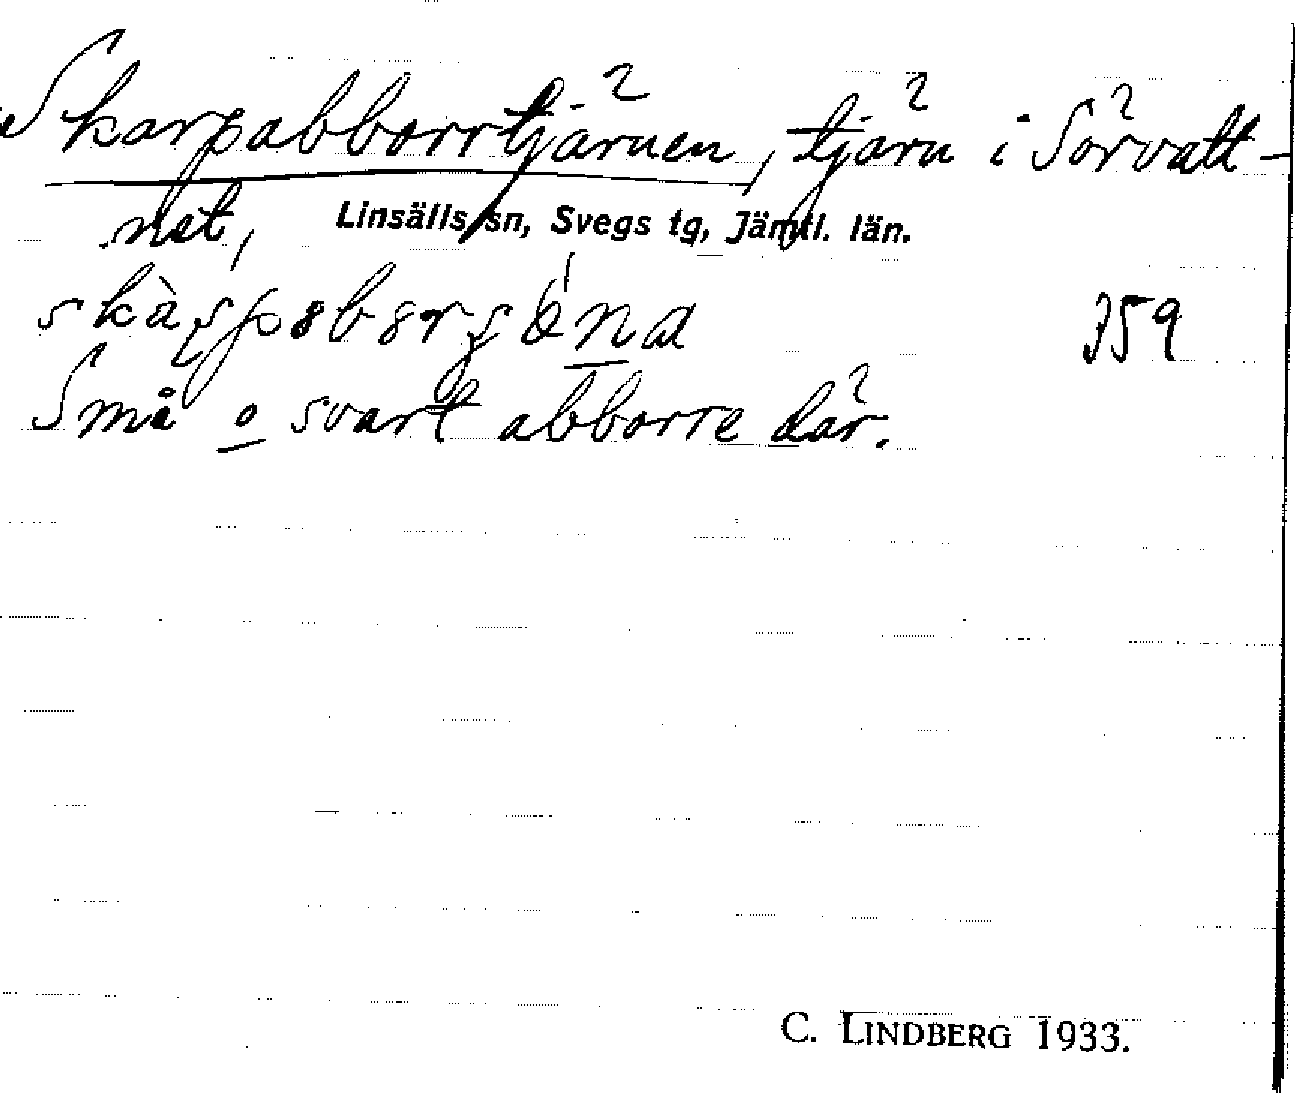 Skarpabborrtjärnen, tjärn i Sörvatt-
net,
Linsälls sn, Svegs tg, Jämtl. län.
359
Små o svart abborre där.
C. LINDBERG 1933.